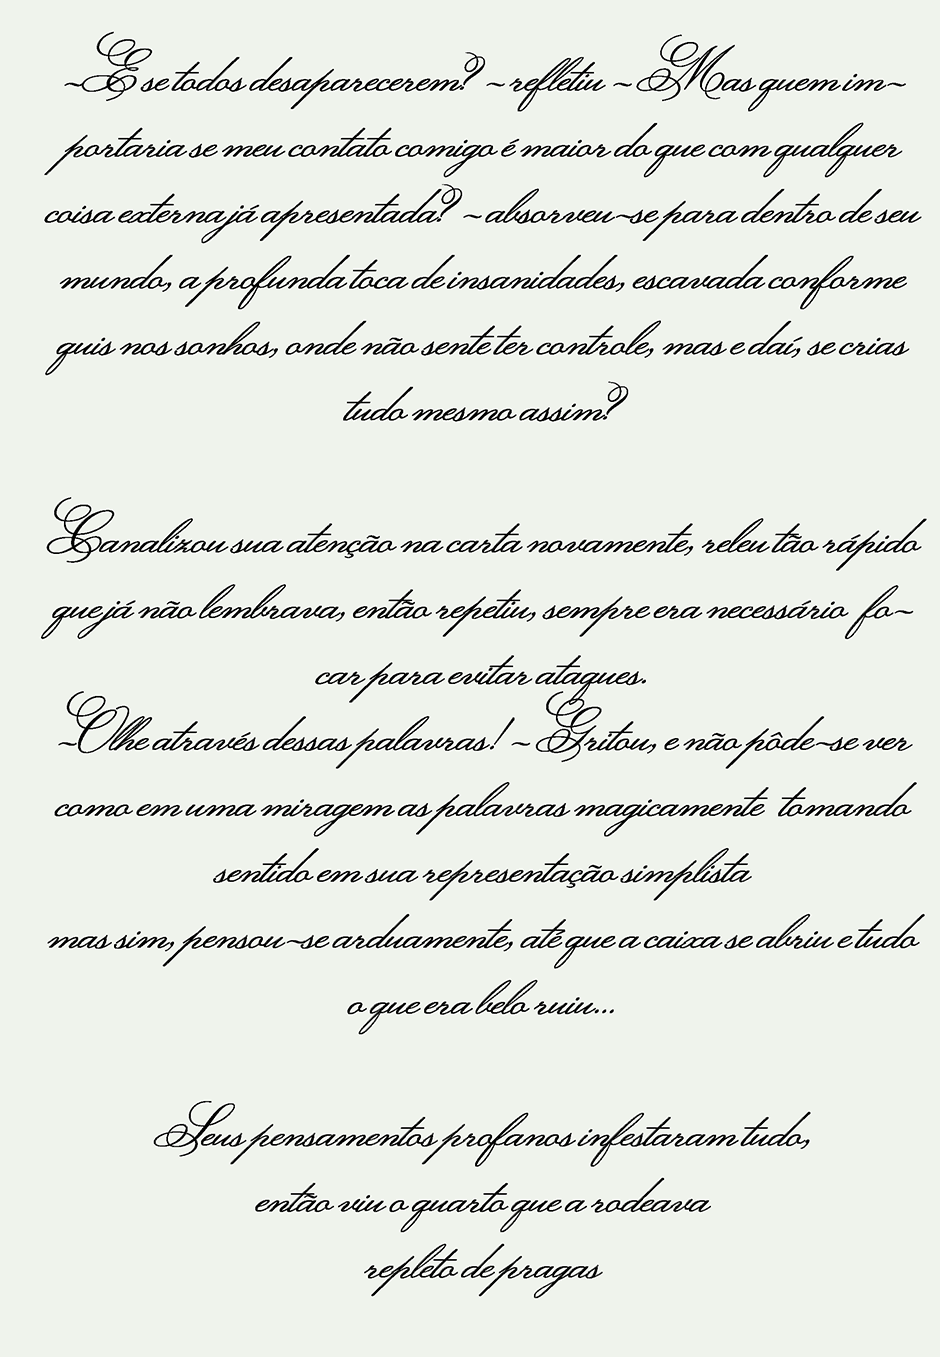 -E se todos desaparecerem? - refletiu - Mas quem im-
portaria se meu contato comigo é maior do que com qualquer
coisa externa já apresentada? - absorveu-se para dentro de seu
mundo, a profunda toca de insanidades, escavada conforme
quis nos sonhos, onde não sente ter controle, mas e daí, se crias
tudo mesmo assim?
Canalizou sua atenção na carta novamente, releu tão rápido
que já não lembrava, então repetiu, sempre era necessário fo-
car para evitar ataques.
-Olhe através dessas palavras! - Gritou, e não pôde-se ver
como em uma miragem as palavras magicamente tomando
sentido em sua representação simplista
mas sim, pensou-se arduamente, até que a caixa se abriu e tudo
o que era belo ruiu...
Seus pensamentos profanos infestaram tudo,
então viu o quarto que a rodeava
repleto de pragas